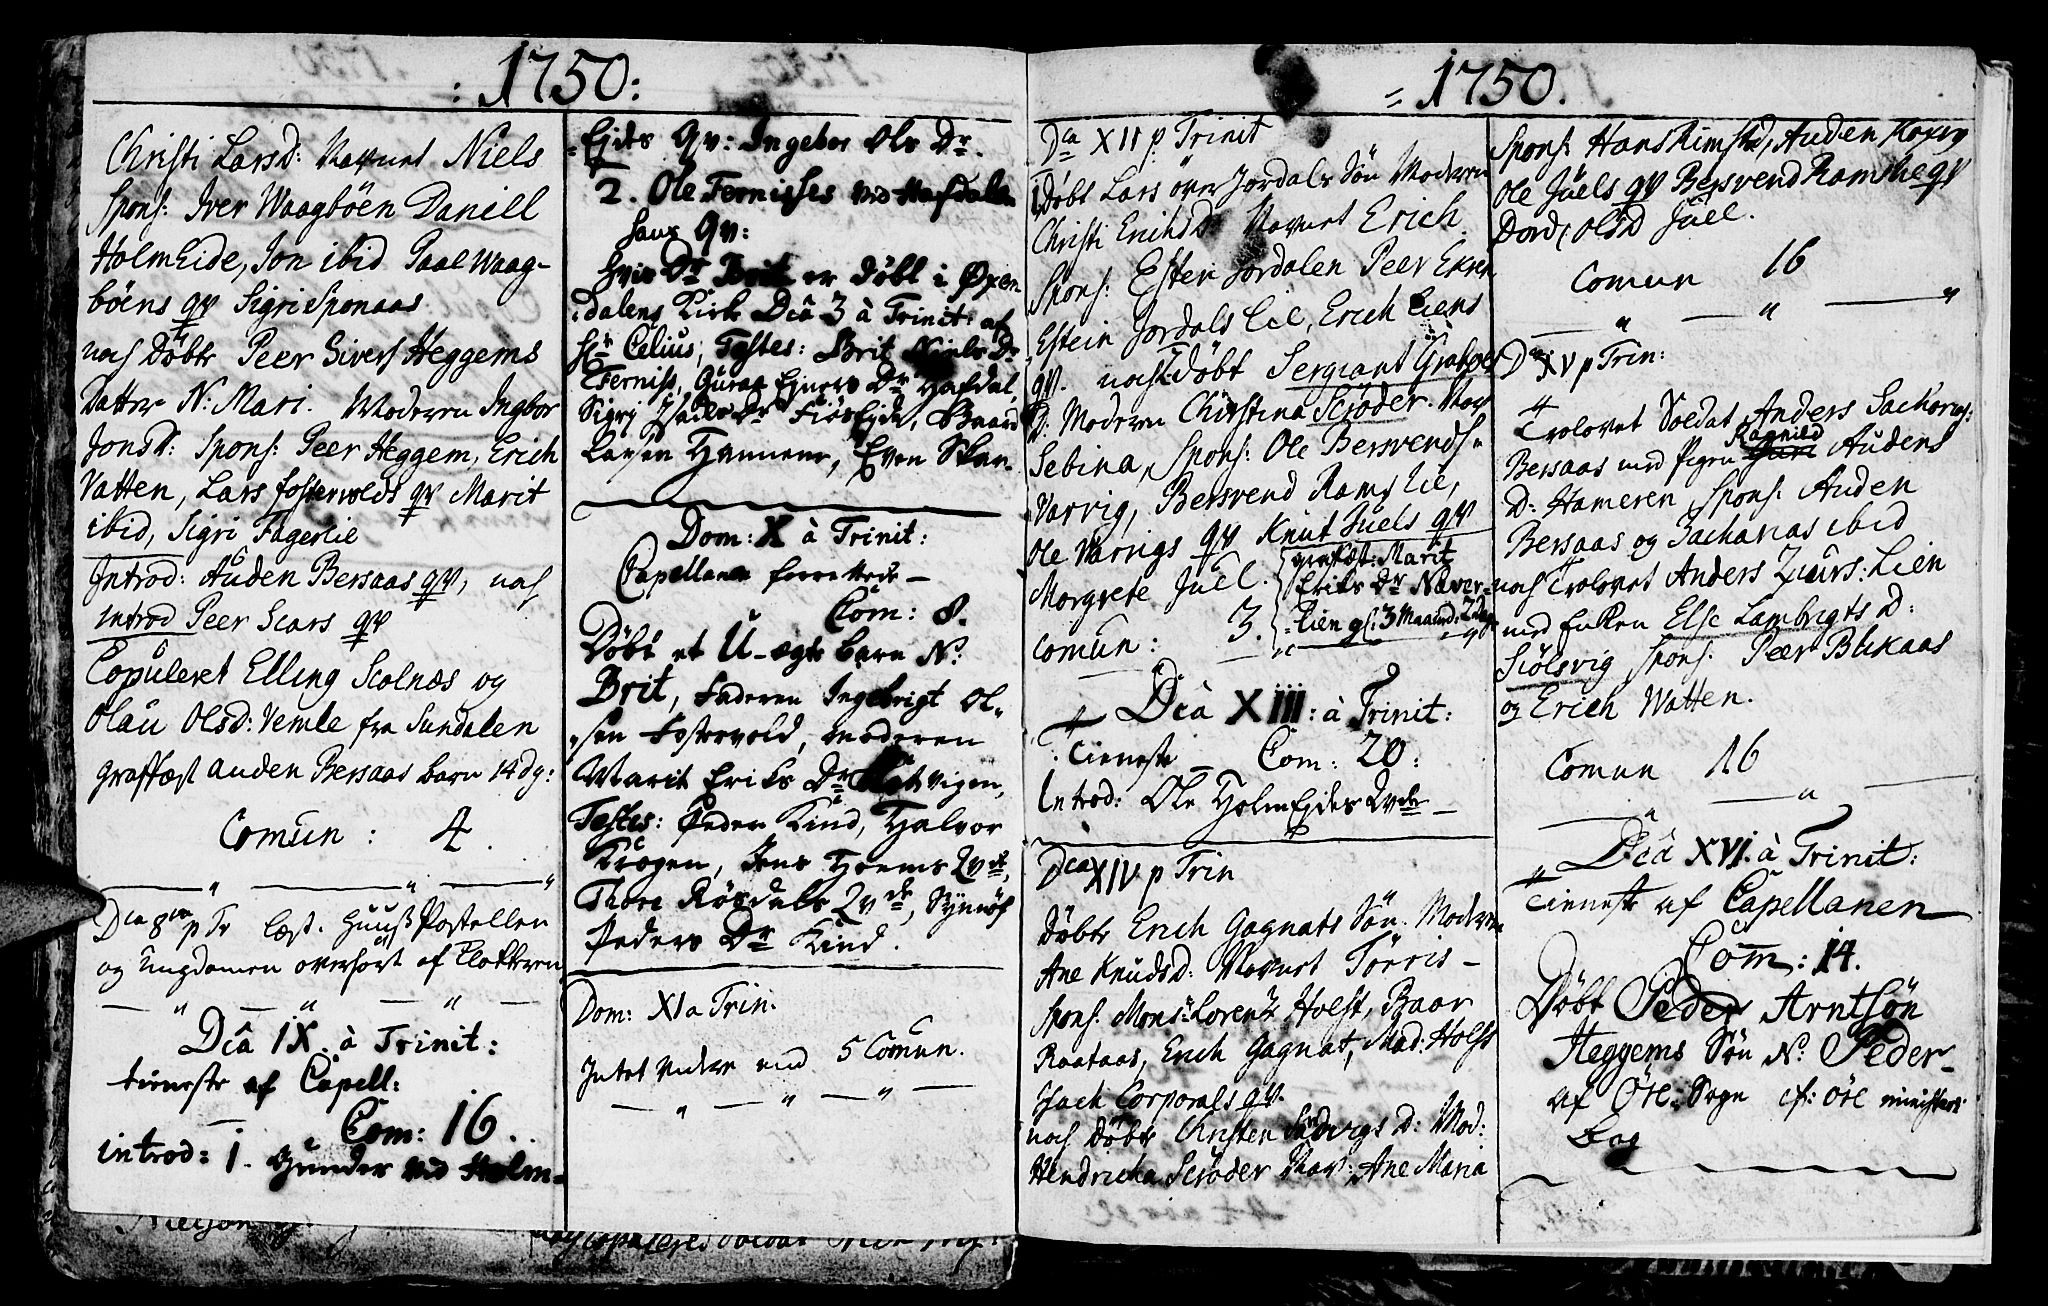 : 1750:
Christi LarsD: Navnet Niels
Spons: Iver Waagböen Daniell
HolmEide, Jon ibid Paal Waag-
böens qv Sigri Sponaas
noch Döbt Peer Sivers Heggems
Datter N: Mari. Moderen Ingbor
JonsD: Spons: Peer Heggem, Erich
Vatten, Lars fostervolds qv Marit
ibid, Sigri Fagerlie
Introd: Auden Bersaas qv, noch
introd Peer Scars qv
Copuleret Elling Scolnæs og
Olau OlsD: Vemle fra Sundalen
graffæst Auden Bersaas barn 14 dg:
Comun: 4.
Dca 8va p Tr læst. Huuss Postellen
og ungdomen overhört af Clokkeren
Dca IX. à Trinit:
tieneste af Capell:
Com: 16.
introd: 1. Gunder ved Holm-
-Ejds Qv: Ingebor Ols Dr.
2. Ole Fernisses ved Hafdalen
hans Qv:
hvis Dr Brit er döbt i Öxen
dalens Kirke Dca 3 à Trinit: af
Hr Celius, Testes: Brit Niels Dr
Ferniss, Guroe Ejners Dr Hafdal,
Sigri Dr FiösEjde, Baard
Larsen Hammer, Even Skar-
Dom: X à Trinit:
Capellanen forrettede -
Com: 8.
Döbt et U-ægte barn N:
Brit, Faderen Ingebrigt Ol-
-sen Fostervold, Moderen
Marit Eriks Dr vigen,
Testes: Peder Kind, Halvor
Krogen, Jens Hoems Qvde,
Thore Rösdals Qvde, Synnöf
Peders Dr Kind.
Dom: XI a Trin:
Intet videre end 5 Comun.
= 1750.
Dca XII p Trinit
Döbt Lars över Jordals Sön Moderen
Christi ErichsD Navnet Erich.
Spons: Esten Jordalen Peer Ekren
Estein Jordals Lie, Erich Liens
qv. noch Döbt Sergiant
D. Moderen Christina Scröder. Nav
Sebina, Spons: Ole Bersvends-
Varvig, Bersvend Rams Lie,
Ole Varvigs qv Knut Juels qv
Margrete Juel. graffæst: Marit
Eriks Dr Naver-
-lien gl: 3 Maaned. 2 dage
Comun: 3.
Dca XIII: à Trinit:
Tieneste Com: 20:
Introd: Ole HolmEjdes Qvde -
Dca XIV p Trin
Döbt Erich Gagnats Sön. Moderen
Ane KnudsD: Navnet Törris -
Spons. Mons: Lorentz Holst, Baar
Raataas, Erich Gagnat, Mad: Holst
Corporals qv.
noch Döbt Christen Ludvigs D: Mod:
Hendricha Scröder Nav: Ane Maria
Spons: Hans Rimstad, Auden
Ole Juels qv Bersvend Ramslie qv
Dord, OlsD Juel.
Comun 16
Dca XV p Trin:
Trolovet Soldat Anders Sacharias:
Bersaas med Pigen Ragnild Audens
D: Hameren Spons: Auden
Bersaas og Zacharias ibid
noch Trolovet Anders Ziurs: Lien
med Enken Else Lambrigts D:
Siölsvig Spons: Peer Blikaas
og Erich Watten.
Comun 16
Dca XVI. à Trinit:
Tieneste af Capellanen
Com: 14.
Döbt Peder Arntsön
Heggems Sön N: Peder-
af Öre Sogn cf: Öre ministeri-
bog